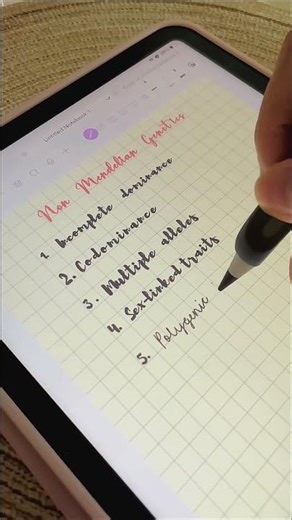 Untitled Notebook
Non Mendelian Genetics
1. Incomplete dominance
2. Codominance
3. Multiple alleles
4. Sex-linked traits
5. Polygenic